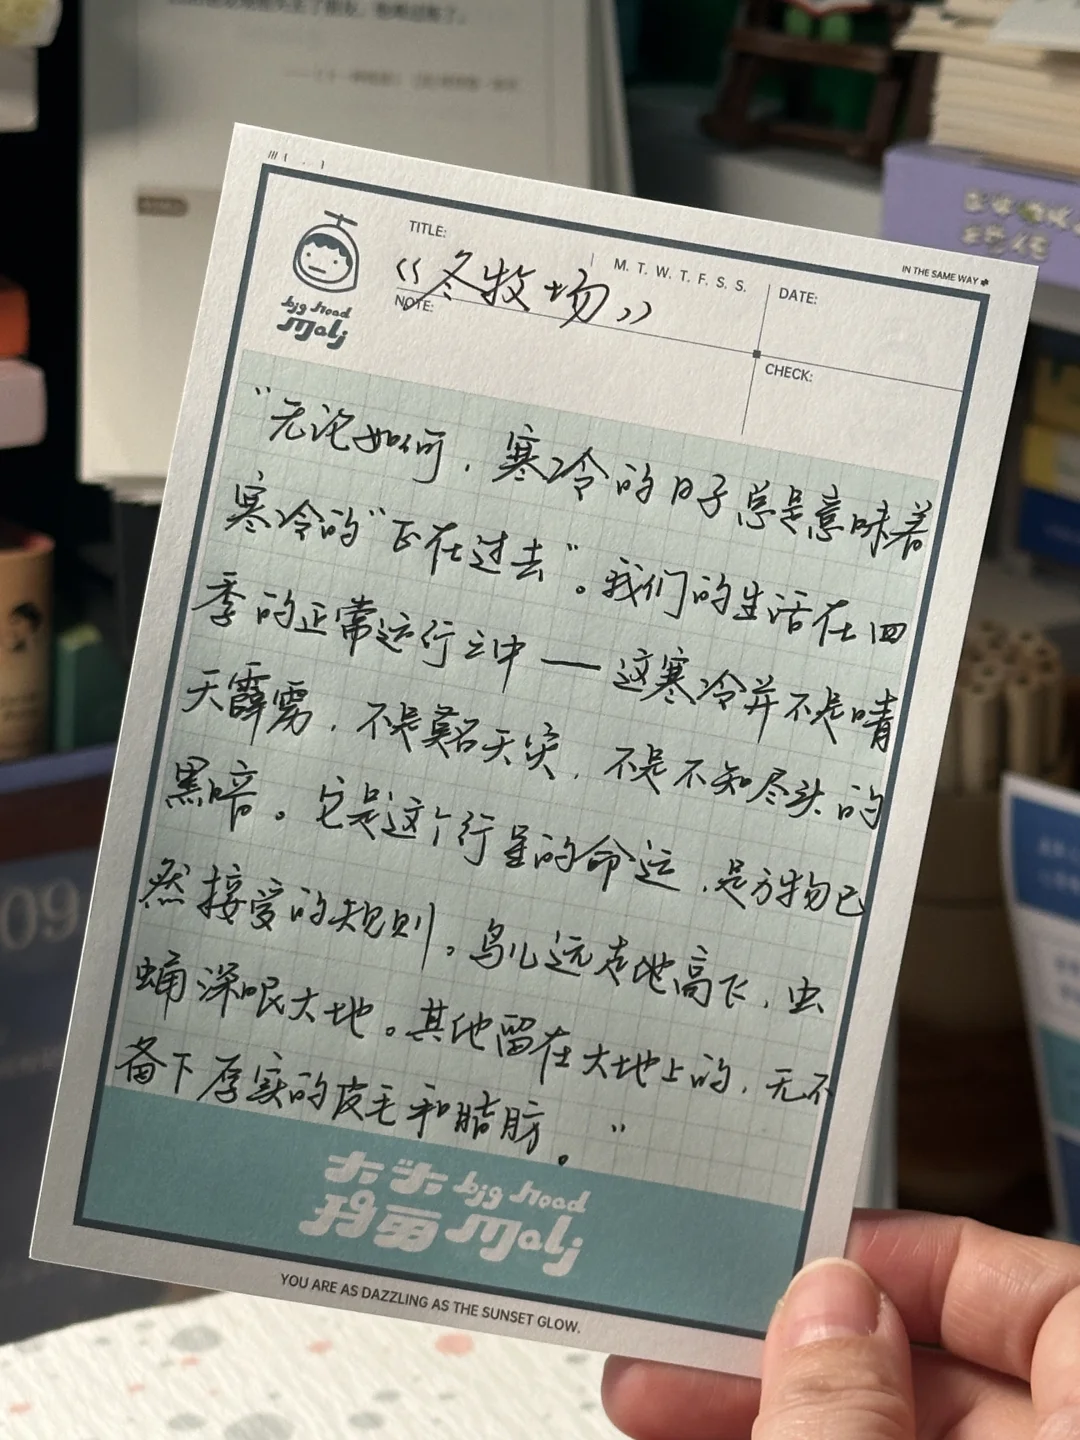 TITLE:
《冬牧场》
M. T. W. T. F. S. S.
DATE:
IN THE SAME WAY
NOTE:
CHECK:
big head
Molj
“无论如何，寒冷的日子总是意味着
寒冷的“正在过去”。我们的生活在四
季的正常运行之中——这寒冷并不是晴
天霹雳，不是莫名天灾，不是不知尽头的
黑暗。它是这个行星的命运，是万物已
然接受的规则。鸟儿远走地高飞，虫
蛹深眠大地。其他留在大地上的，无不
备下厚实的皮毛和脂肪。”
big head
Molj
YOU ARE AS DAZZLING AS THE SUNSET GLOW.
09